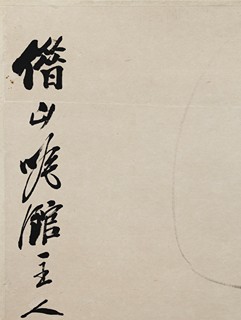 借山吟館主人